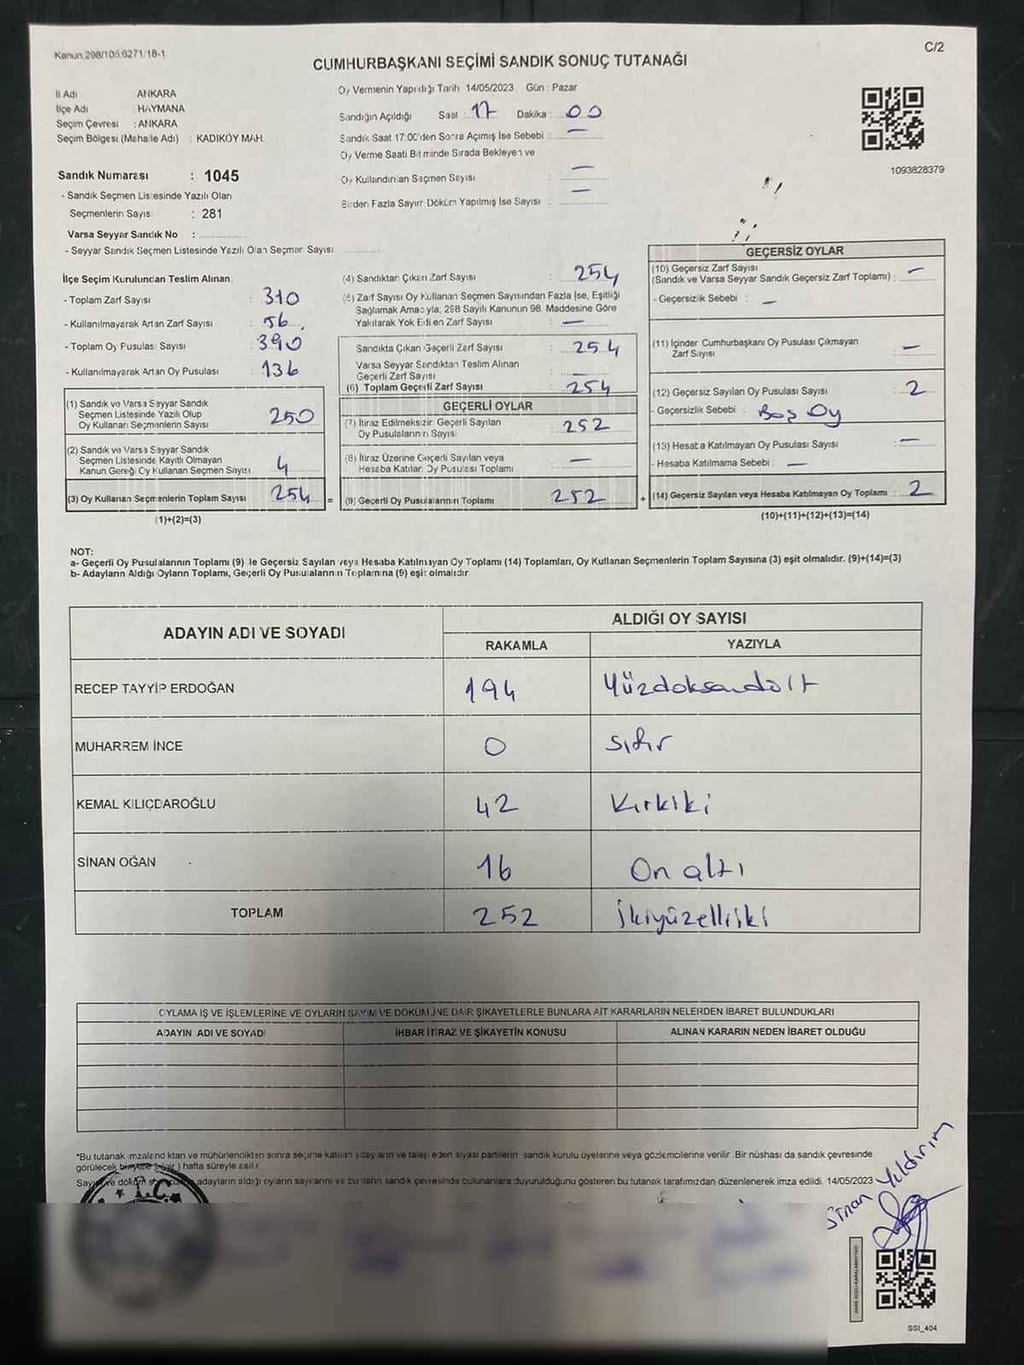 Kanun 298/105,6271/18-1
C/2
CUMHURBAŞKANI SEÇİMİ SANDIK SONUÇ TUTANAĞI
İl Adı : ANKARA
İlçe Adı : HAYMANA
Seçim Çevresi : ANKARA
Seçim Bölgesi (Mahalle Adı) : KADIKÖY MAH.
Sandık Numarası : 1045
- Sandık Seçmen Listesinde Yazılı Olan
Seçmenlerin Sayısı : 281
Varsa Seyyar Sandık No :
- Seyyar Sandık Seçmen Listesinde Yazılı Olan Seçmen Sayısı
Oy Vermenin Yapıldığı Tarih 14/05/2023 Gün : Pazar
Sandığın Açıldığı Saat : 17 Dakika : 00
Sandık Saat 17:00'den Sonra Açılmış İse Sebebi : —
Oy Verme Saati Bitiminde Sırada Bekleyen ve
Oy Kullandırılan Seçmen Sayısı —
Birden Fazla Sayım Döküm Yapılmış İse Sayısı : —
1093828379
İlçe Seçim Kurulundan Teslim Alınan:
- Toplam Zarf Sayısı : 310
- Kullanılmayarak Artan Zarf Sayısı : 56
- Toplam Oy Pusulası Sayısı : 390
- Kullanılmayarak Artan Oy Pusulası : 136
(1) Sandık ve Varsa Seyyar Sandık
Seçmen Listesinde Yazılı Olup
Oy Kullanan Seçmenlerin Sayısı 250
(2) Sandık ve Varsa Seyyar Sandık
Seçmen Listesinde Kayıtlı Olmayan
Kanun Gereği Oy Kullanan Seçmen Sayısı 4
(3) Oy Kullanan Seçmenlerin Toplam Sayısı 254
(1)+(2)=(3)
(4) Sandıktan Çıkan Zarf Sayısı : 254
(5) Zarf Sayısı Oy Kullanan Seçmen Sayısından Fazla İse, Eşitliği
Sağlamak Amacıyla, 298 Sayılı Kanunun 98. Maddesine Göre
Yakılarak Yok Edilen Zarf Sayısı : —
Sandıkta Çıkan Geçerli Zarf Sayısı : 254
Varsa Seyyar Sandıktan Teslim Alınan
Geçerli Zarf Sayısı : —
(6) Toplam Geçerli Zarf Sayısı : 254
GEÇERLİ OYLAR
(7) İtiraz Edilmeksizin Geçerli Sayılan
Oy Pusulalarının Sayısı : 252
(8) İtiraz Üzerine Geçerli Sayılan veya
Hesaba Katılan Oy Pusulası Toplamı : —
= (9) Geçerli Oy Pusulalarının Toplamı : 252
GEÇERSİZ OYLAR
(10) Geçersiz Zarf Sayısı
(Sandık ve Varsa Seyyar Sandık Geçersiz Zarf Toplamı) : —
- Geçersizlik Sebebi : —
(11) İçinden Cumhurbaşkanı Oy Pusulası Çıkmayan
Zarf Sayısı : —
(12) Geçersiz Sayılan Oy Pusulası Sayısı : 2
- Geçersizlik Sebebi : Boş Oy
(13) Hesaba Katılmayan Oy Pusulası Sayısı : —
- Hesaba Katılmama Sebebi : —
+ (14) Geçersiz Sayılan veya Hesaba Katılmayan Oy Toplamı : 2
(10)+(11)+(12)+(13)=(14)
NOT:
a- Geçerli Oy Pusulalarının Toplamı (9) ile Geçersiz Sayılan veya Hesaba Katılmayan Oy Toplamı (14) Toplamları, Oy Kullanan Seçmenlerin Toplam Sayısına (3) eşit olmalıdır. (9)+(14)=(3)
b- Adayların Aldığı Oyların Toplamı, Geçerli Oy Pusulalarının Toplamına (9) eşit olmalıdır
ADAYIN ADI VE SOYADI ALDIĞI OY SAYISI
RAKAMLA YAZIYLA
RECEP TAYYİP ERDOĞAN 194 Yüzdoksandört
MUHARREM İNCE 0 Sıfır
KEMAL KILIÇDAROĞLU 42 Kırkiki
SİNAN OĞAN 16 On altı
TOPLAM 252 İkiyüzelliiki
OYLAMA İŞ VE İŞLEMLERİNE VE OYLARIN SAYIM VE DÖKÜMÜNE DAİR ŞİKAYETLERLE BUNLARA AİT KARARLARIN NELERDEN İBARET BULUNDUKLARI
ADAYIN ADI VE SOYADI İHBAR İTİRAZ VE ŞİKAYETİN KONUSU ALINAN KARARIN NEDEN İBARET OLDUĞU
*Bu tutanak imzalandıktan ve mühürlendikten sonra seçime katılan adayların ve talep eden siyasi partilerin, sandık kurulu üyelerine veya gözlemcilerine verilir. Bir nüshası da sandık çevresinde
görülecek bir yere 1 (bir) hafta süreyle asılır
Sayım ve döküm adayların aldığı oyların sayılarını ve bu ların sandık çevresinde bulunanlara duyurulduğunu gösteren bu tutanak tarafımızdan düzenlenerek imza edildi. 14/05/2023
T.C.
Sinan Yıldırım
SSI_404